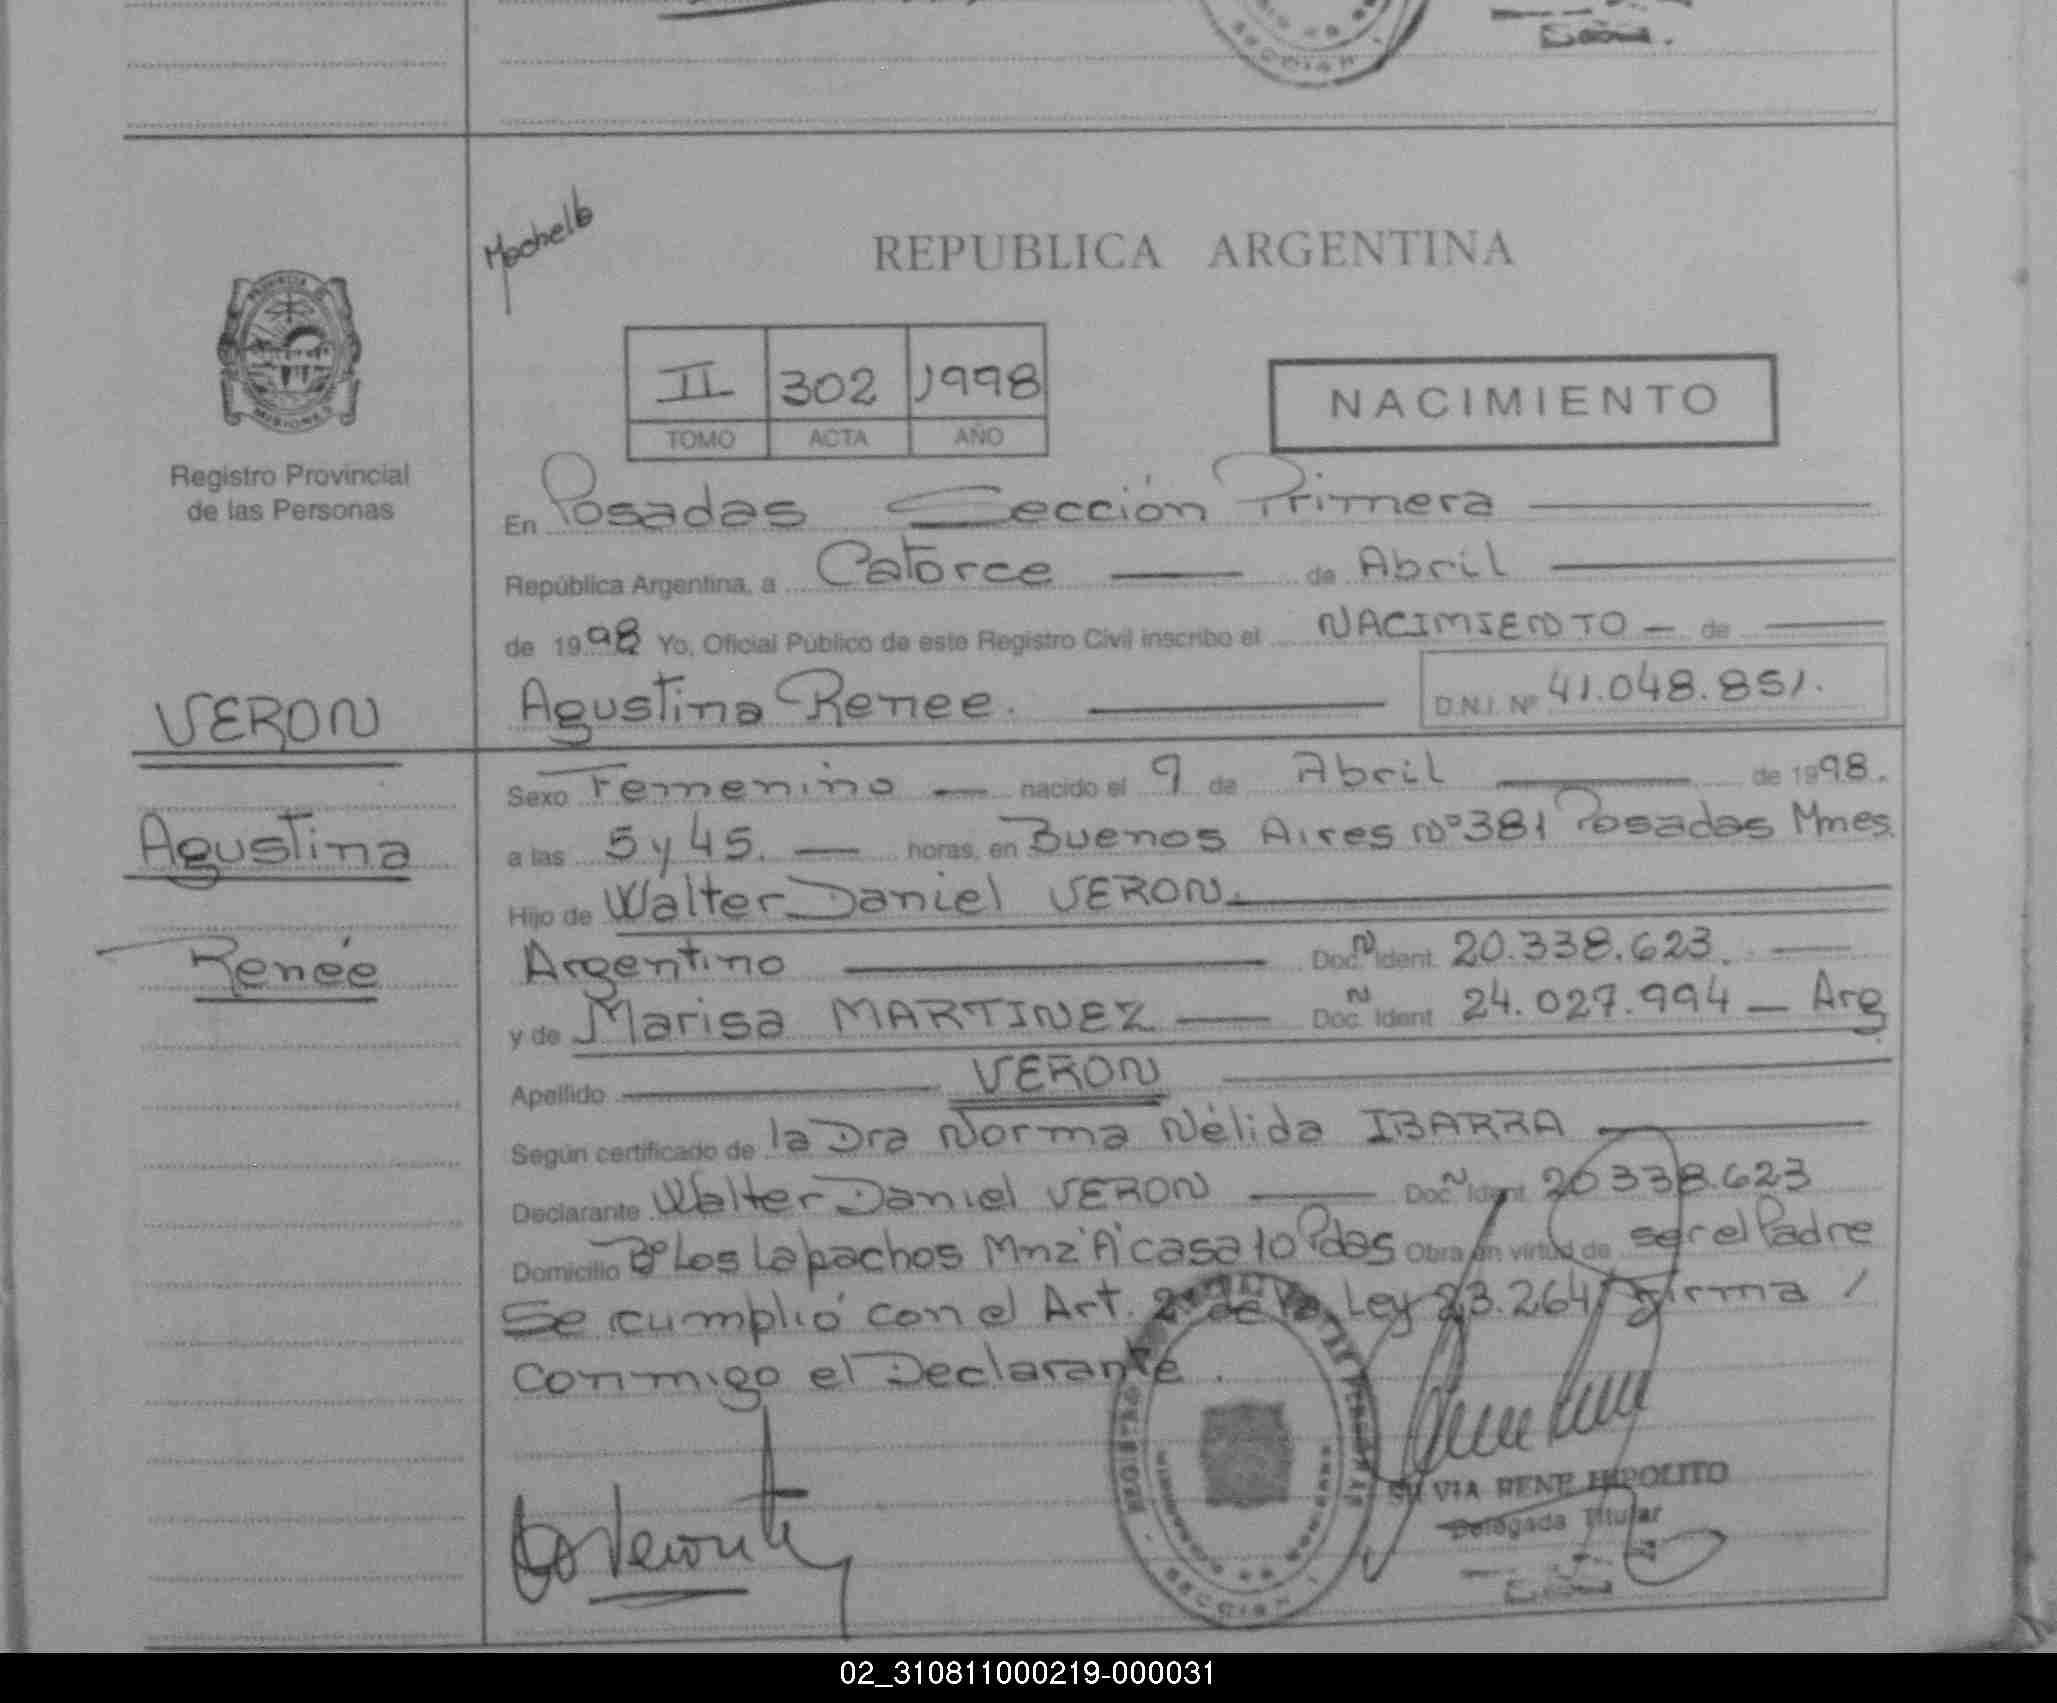 Mochello
REPUBLICA ARGENTINA
II 302 1998
TOMO ACTA AÑO
NACIMIENTO
PROVINCIA DE
MISIONES
Registro Provincial
de las Personas
En Posadas Sección Primera
República Argentina, a Catorce de Abril
de 1998 Yo, Oficial Público de este Registro Civil inscribo el NACIMIENTO de
VERON
Agustina Renee.
D.N.I. Nº 41.048.851.
Sexo Femenino nacido el 9 de Abril de 1998.
Agustina
a las 5 y 45. horas, en Buenos Aires Nº 381 Posadas Mnes.
Hijo de Walter Daniel VERON.
Renée
Argentino Doc. N Ident. 20.338.623.
y de Marisa MARTINEZ Doc. N Ident 24.027.994 Arg.
Apellido VERON
Según certificado de la Dra Norma Nélida IBARRA
Declarante Walter Daniel VERON Doc. N Ident 20338.623
Domicilio Bº Los Lapachos Mnz 'A' casa 10 Pdas Obra en virtud de ser el Padre
Se cumplió con el Art. 2º de la Ley 23.264 firma /
conmigo el Declarante.
SILVIA RENE HIPOLITO
Delegada Titular
SECCION 1
02_310811000219-000031